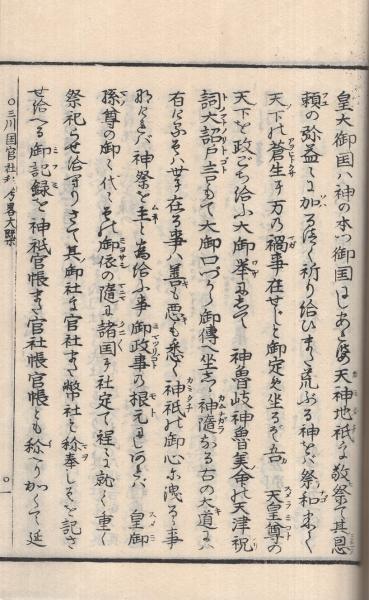 皇大御国ハ神の本つ御国にしあれば天神地祇を敬祭て其恩
頼の弥益々に加る法く祈り給ひまた荒ぶる神をバ祭和まく
天下の蒼生に万の禍事在せじと御定め坐るぞ吾 天皇尊の
天下を政ごち給ふ大御挙にして 神魯岐神魯美命の天津祝
詞大詔戸言もて大御口づから御傳へ坐し神随なる古の大道に
有けるそハ世に在る事ハ善も悪も悉く神祇の御心に洩るゝ事
那けれバ神祭を主と為給ふ事御政事の根元にしあれバ 皇御
孫尊の御代々それ御依の隨に諸国に社定て程々に就く重く
祭祀らせ給ひけりさて其御社を官社また幣社と称奉しそを記さ
せ給へる御記録を神祇官帳また官社帳官帳とも称へりかくて延
○三川国官社私考畧大槩
○ 一